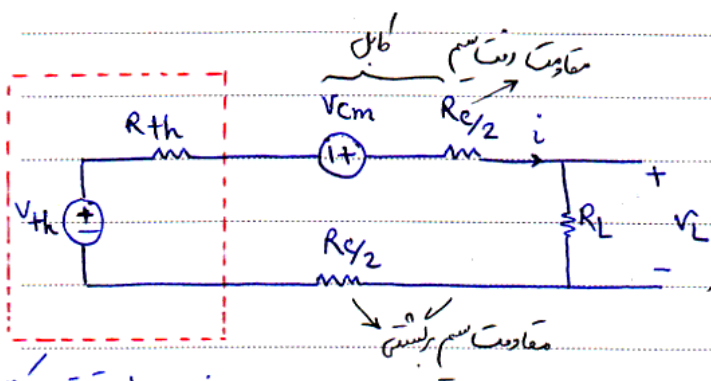 کابل
مقاومت رفت سیم
Vcm
Rc/2
Rth
i
+
Vth
+
−
RL
VL
Rc/2
−
مقاومت سیم برگشتی